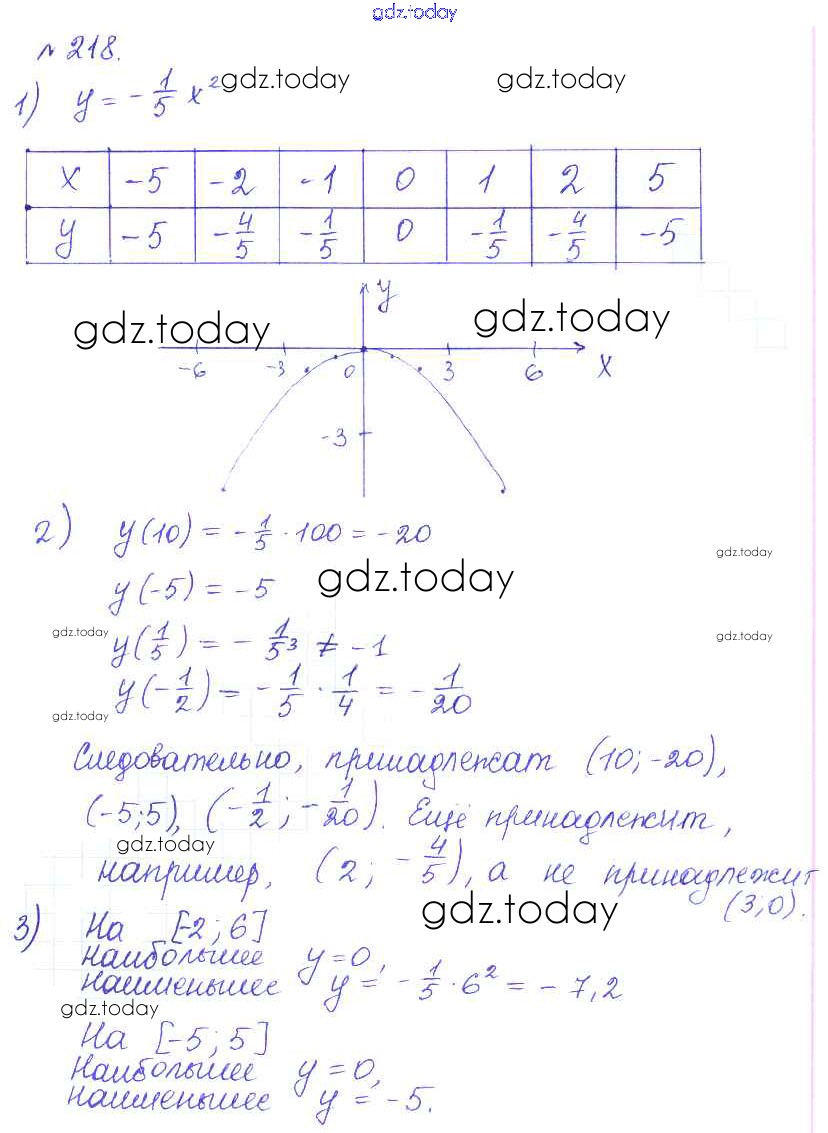 gdz.today
№ 218.
1) y = -1/5 x² gdz.today gdz.today
x -5 -2 -1 0 1 2 5
y -5 -4/5 -1/5 0 -1/5 -4/5 -5
y
gdz.today gdz.today
-6 -3 0 3 6 x
-3
2) y(10) = -1/5 · 100 = -20
gdz.today
y(-5) = -5 gdz.today
gdz.today y(1/5) = -1/5³ ≠ -1 gdz.today
y(-1/2) = -1/5 · 1/4 = -1/20
gdz.today
Следовательно, принадлежат (10; -20),
(-5;5), (-1/2; -1/20). Ещё принадлежит,
gdz.today
например, (2; -4/5), а не принадлежит
(3;0).
3) На [-2; 6] gdz.today
наибольшее y=0,
наименьшее y = -1/5 · 6² = -7,2
gdz.today
На [-5; 5]
наибольшее y=0,
наименьшее y = -5.